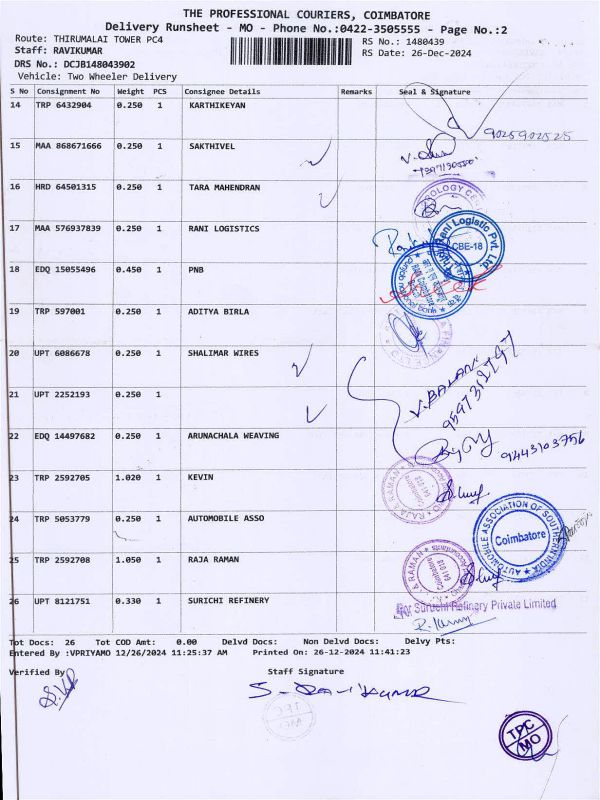 THE PROFESSIONAL COURIERS, COIMBATORE
Delivery Runsheet - MO - Phone No.:0422-3505555 - Page No.:2
Route: THIRUMALAI TOWER PC4 RS No.: 1480439
Staff: RAVIKUMAR RS Date: 26-Dec-2024
DRS No.: DCJB148043902
Vehicle: Two Wheeler Delivery
S No Consignment No Weight PCS Consignee Details Remarks Seal & Signature
14 TRP 6432904 0.250 1 KARTHIKEYAN
9025902525
15 MAA 868671666 0.250 1 SAKTHIVEL
16 HRD 64501315 0.250 1 TARA MAHENDRAN
17 MAA 576937839 0.250 1 RANI LOGISTICS
Rani Logistic Pvt. Ltd.
CBE-18
18 EDQ 15055496 0.450 1 PNB
19 TRP 597001 0.250 1 ADITYA BIRLA
20 UPT 6086678 0.250 1 SHALIMAR WIRES
V. BALAN
21 UPT 2252193 0.250 1
22 EDQ 14497682 0.250 1 ARUNACHALA WEAVING
9443103756
23 TRP 2592705 1.020 1 KEVIN
24 TRP 5053779 0.250 1 AUTOMOBILE ASSO
AUTOMOBILE ASSOCIATION OF SOUTHERN INDIA
Coimbatore
25 TRP 2592708 1.050 1 RAJA RAMAN
26 UPT 8121751 0.330 1 SURICHI REFINERY
For Suruchi Refinery Private Limited
Tot Docs: 26 Tot COD Amt: 0.00 Delvd Docs: Non Delvd Docs: Delvy Pts:
Entered By :VPRIYAMO 12/26/2024 11:25:37 AM Printed On: 26-12-2024 11:41:23
Verified By Staff Signature
S. Ravikumar
TPC
MO